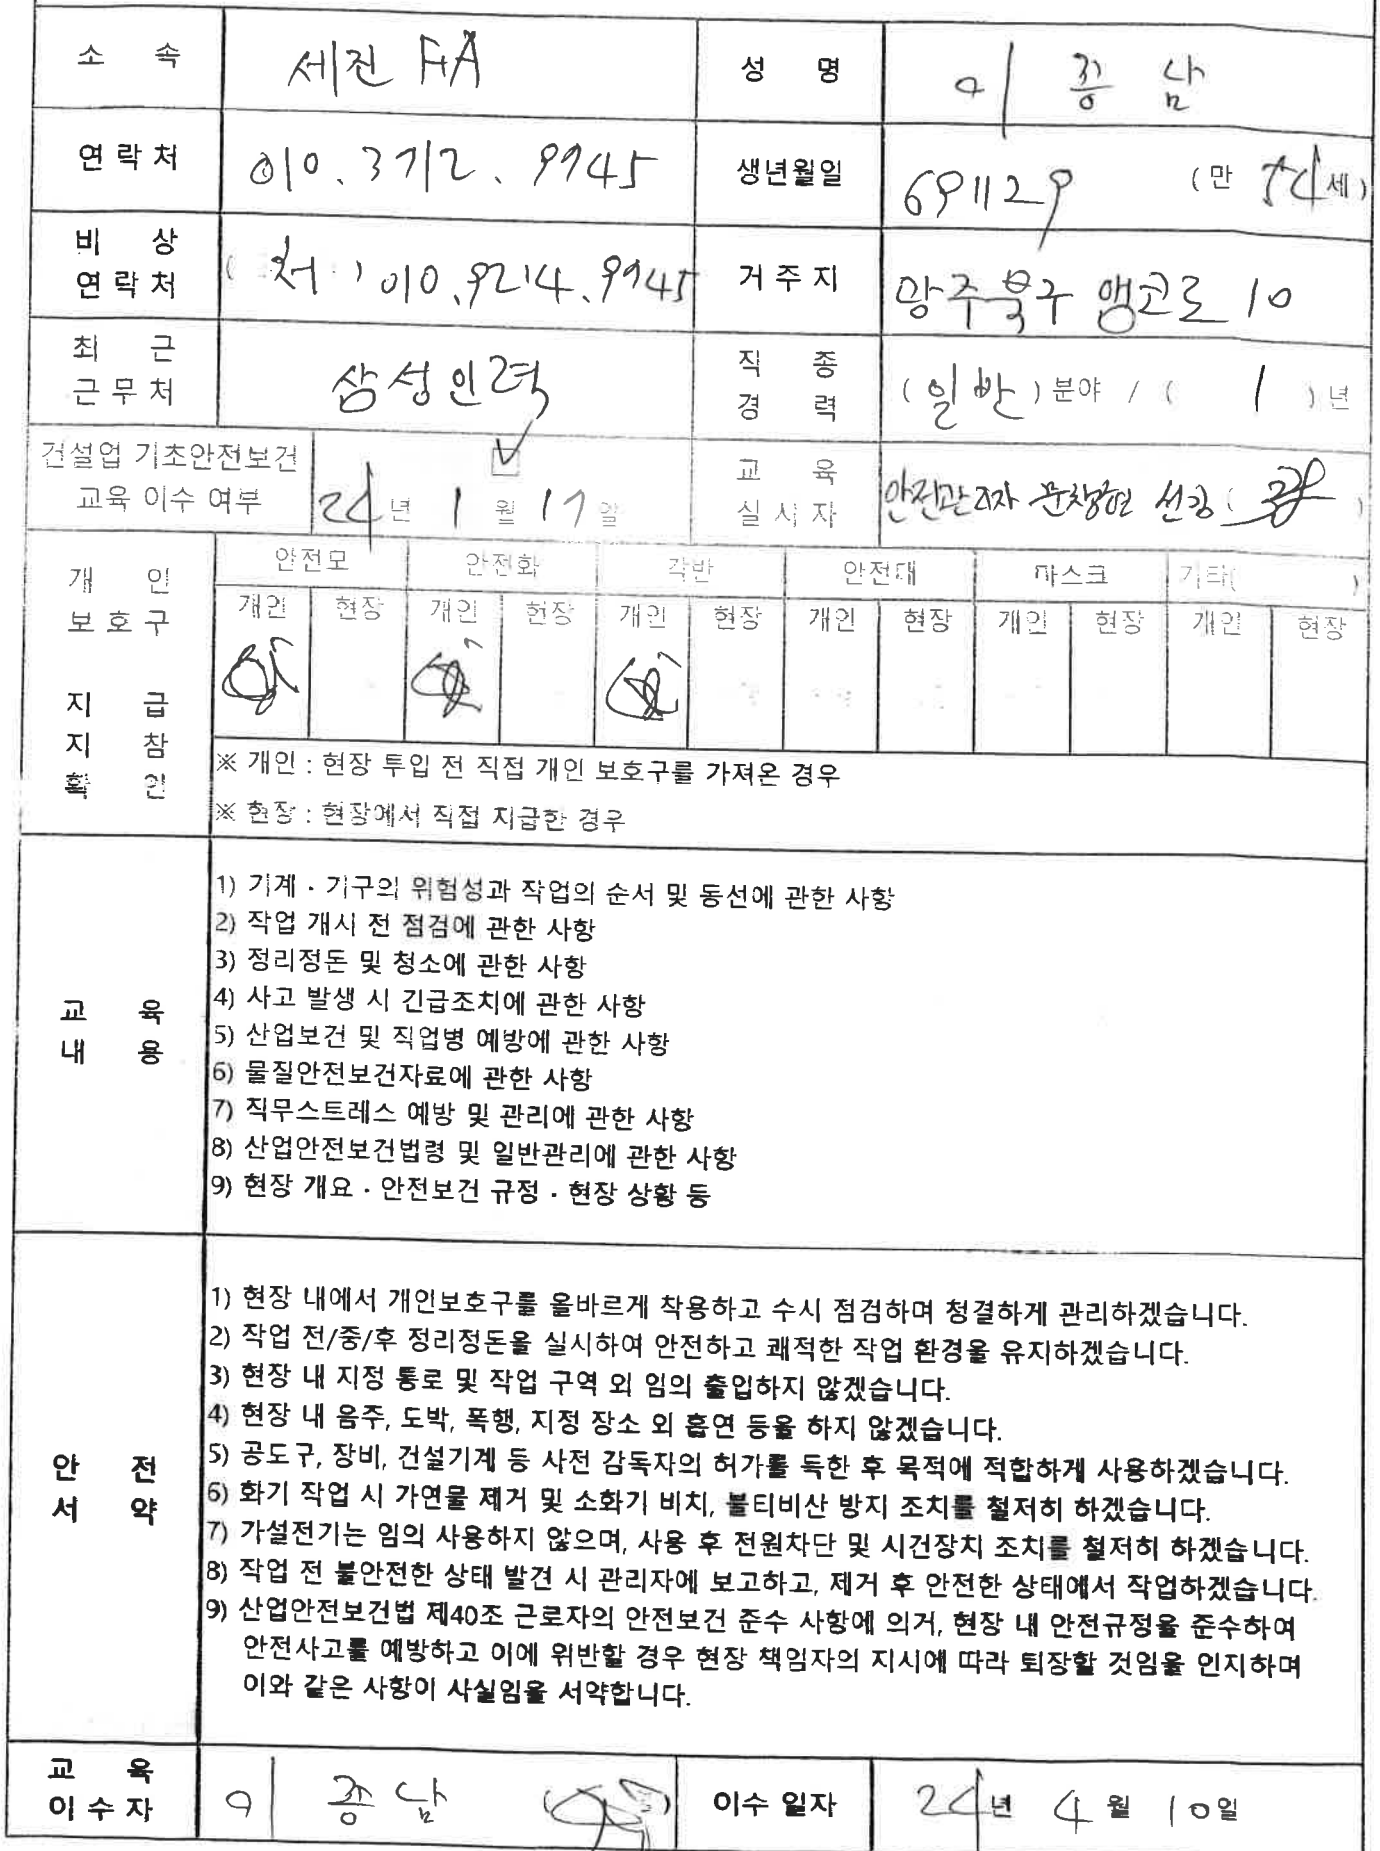 소 속 세진 FA 성 명 이 종 남
연 락 처 010. 3712. 9945 생년월일 691129 (만 54세)
비 상 연 락 처 (처) 010. 9214. 9945 거 주 지 광주북구 앰코로 10
최 근 근 무 처 삼성인력 직 종 경 력 (일반) 분야 / ( 1 ) 년
건설업 기초안전보건 교육 이수 여부 24년 1월 17일 교 육 실 시 자 안전관리자 문창현 선강 ( )
개 인 보 호 구 지 급 지 참 확 인
안전모 안전화 각반 안전대 마스크 기타( )
개인 현장 개인 현장 개인 현장 개인 현장 개인 현장 개인 현장
※ 개인 : 현장 투입 전 직접 개인 보호구를 가져온 경우
※ 현장 : 현장에서 직접 지급한 경우
교 육 내 용
1) 기계 · 기구의 위험성과 작업의 순서 및 동선에 관한 사항
2) 작업 개시 전 점검에 관한 사항
3) 정리정돈 및 청소에 관한 사항
4) 사고 발생 시 긴급조치에 관한 사항
5) 산업보건 및 직업병 예방에 관한 사항
6) 물질안전보건자료에 관한 사항
7) 직무스트레스 예방 및 관리에 관한 사항
8) 산업안전보건법령 및 일반관리에 관한 사항
9) 현장 개요 · 안전보건 규정 · 현장 상황 등
안 전 서 약
1) 현장 내에서 개인보호구를 올바르게 착용하고 수시 점검하며 청결하게 관리하겠습니다.
2) 작업 전/중/후 정리정돈을 실시하여 안전하고 쾌적한 작업 환경을 유지하겠습니다.
3) 현장 내 지정 통로 및 작업 구역 외 임의 출입하지 않겠습니다.
4) 현장 내 음주, 도박, 폭행, 지정 장소 외 흡연 등을 하지 않겠습니다.
5) 공도구, 장비, 건설기계 등 사전 감독자의 허가를 득한 후 목적에 적합하게 사용하겠습니다.
6) 화기 작업 시 가연물 제거 및 소화기 비치, 불티비산 방지 조치를 철저히 하겠습니다.
7) 가설전기는 임의 사용하지 않으며, 사용 후 전원차단 및 시건장치 조치를 철저히 하겠습니다.
8) 작업 전 불안전한 상태 발견 시 관리자에 보고하고, 제거 후 안전한 상태에서 작업하겠습니다.
9) 산업안전보건법 제40조 근로자의 안전보건 준수 사항에 의거, 현장 내 안전규정을 준수하여
안전사고를 예방하고 이에 위반할 경우 현장 책임자의 지시에 따라 퇴장할 것임을 인지하며
이와 같은 사항이 사실임을 서약합니다.
교 육 이 수 자 이 종 남 이수 일자 24년 4월 10일